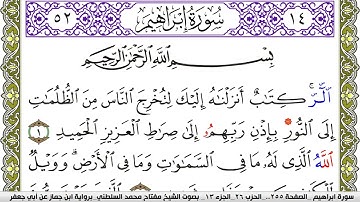 ١٤ سُورَةُ إِبْرَاهِيمَ ٥٢
بِسْمِ ٱللَّهِ ٱلرَّحْمَٰنِ ٱلرَّحِيمِ
الٓرۚ كِتَٰبٌ أَنزَلْنَٰهُ إِلَيْكَ لِتُخْرِجَ ٱلنَّاسَ مِنَ ٱلظُّلُمَٰتِ
إِلَى ٱلنُّورِ بِإِذْنِ رَبِّهِمُۥ إِلَىٰ صِرَٰطِ ٱلْعَزِيزِ ٱلْحَمِيدِ ١
ٱللَّهُ ٱلَّذِى لَهُۥ مَا فِى ٱلسَّمَٰوَٰتِ وَمَا فِى ٱلْأَرْضِۗ وَوَيْلٌ
سورة ابراهيم الصفحة ٢٥٥ الحزب ٢٦ الجزء ١٣ بصوت الشيخ مفتاح محمد السلطني برواية ابن جماز عن أبي جعفر